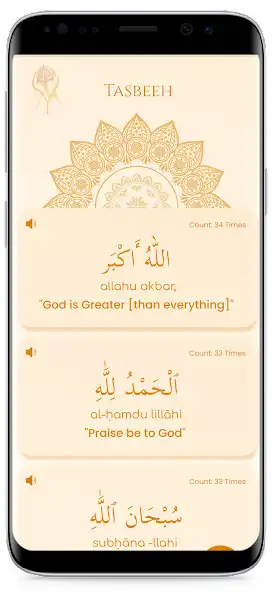 TASBEEH
Count: 34 Times
اللهُ أَكْبَر
allahu akbar,
"God is Greater [than everything]"
Count: 33 Times
ٱلْحَمْدُ لِلَّٰهِ
al-ḥamdu lillāhi
"Praise be to God"
Count: 33 Times
سُبْحَانَ ٱللَّٰهِ
subḥāna -llahi